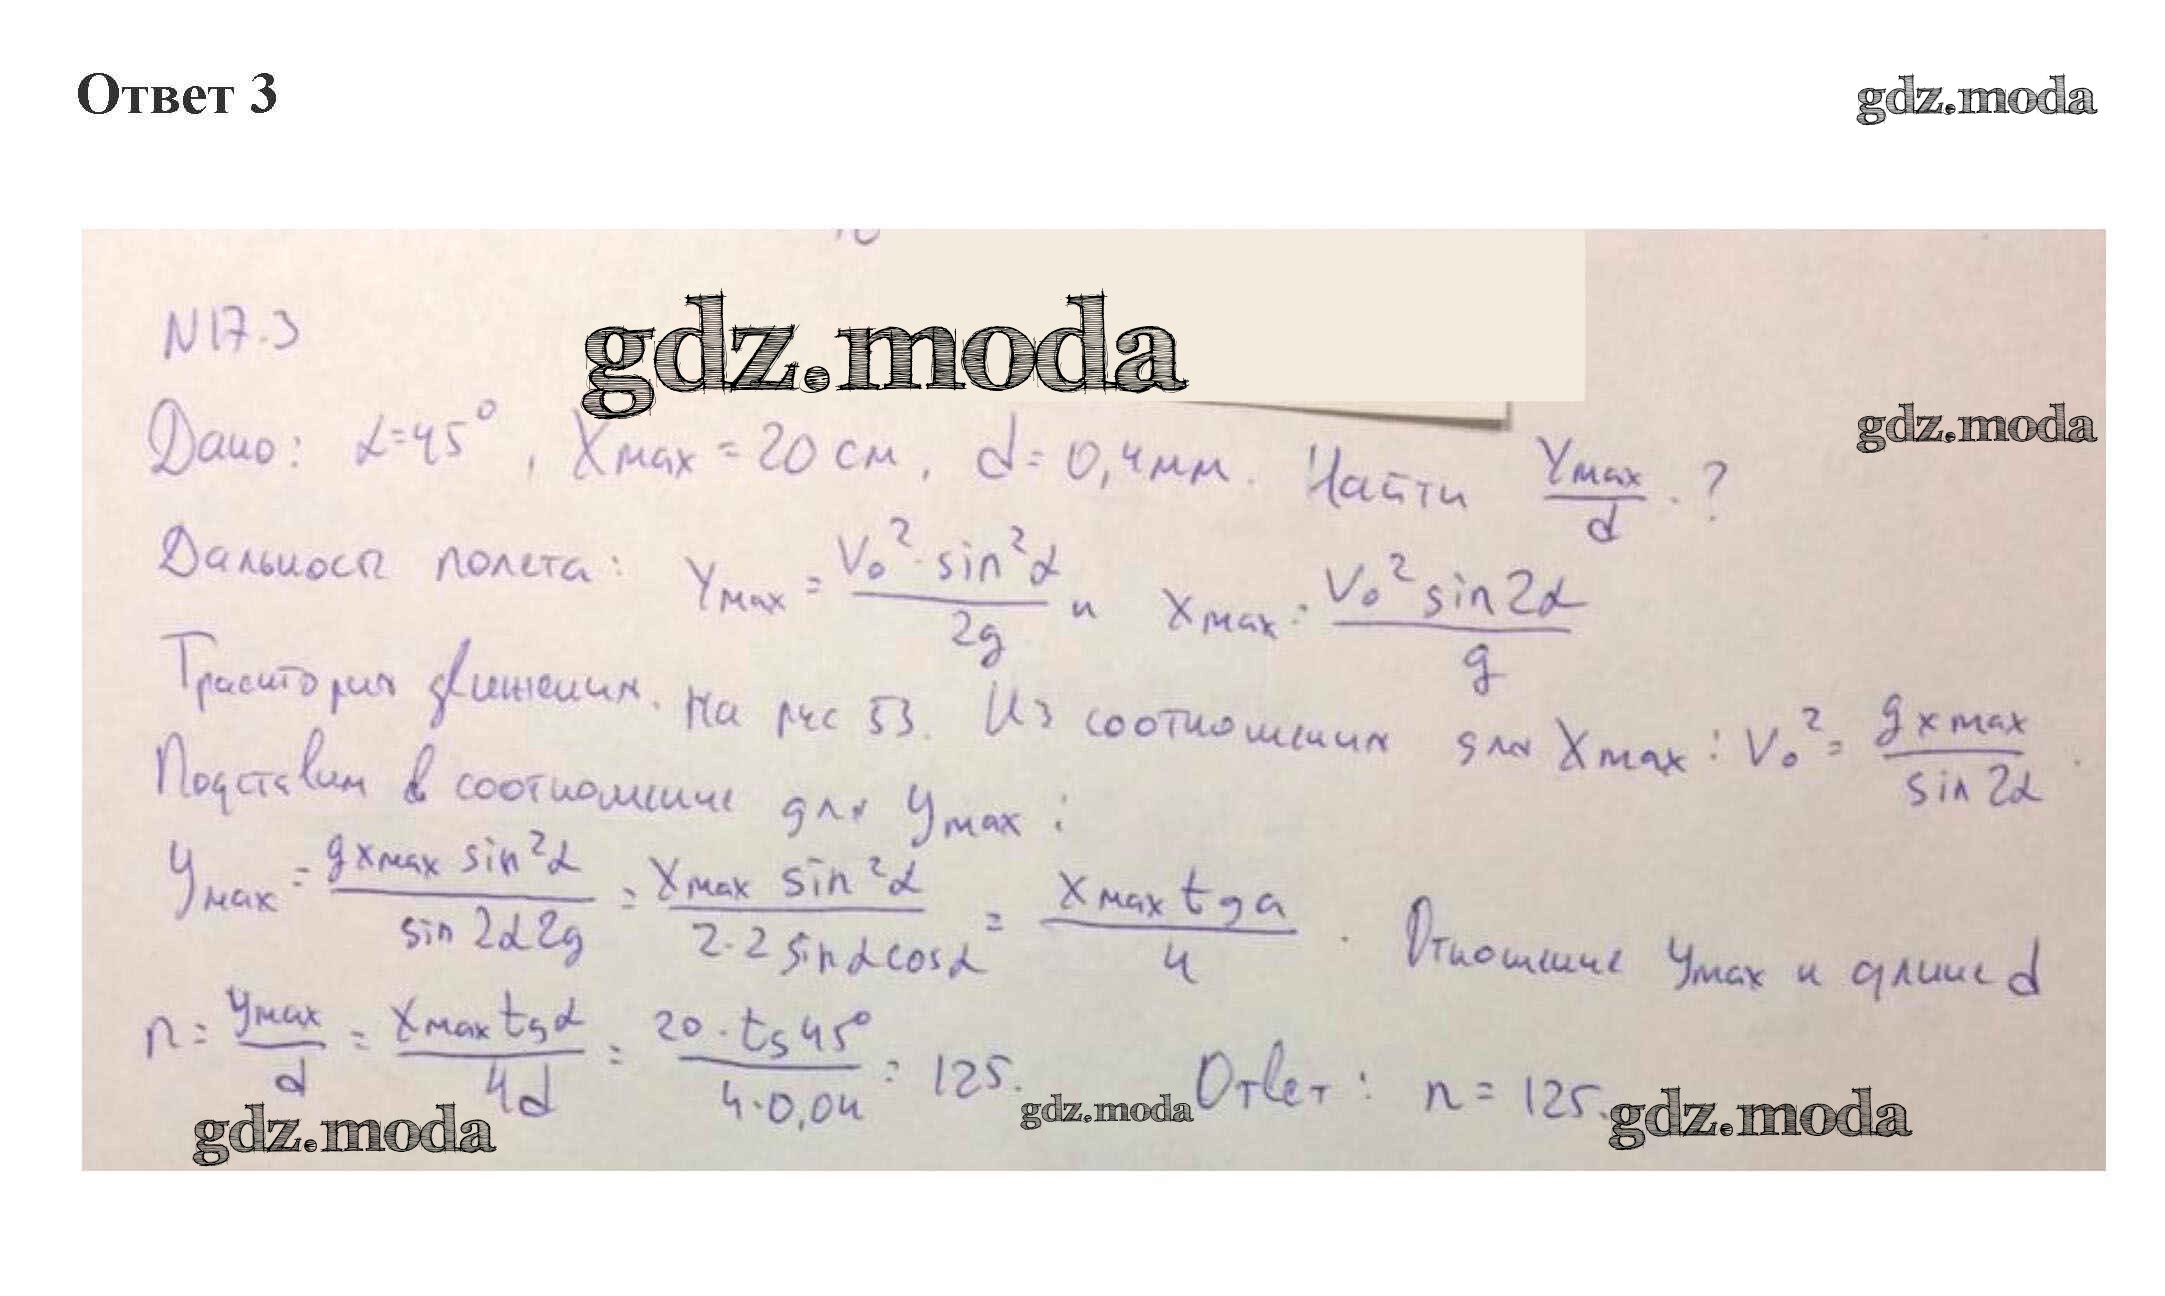 Ответ 3
gdz.moda
N17.3
gdz.moda
Дано: α=45°, Xmax = 20 см, d = 0,4 мм. Найти Ymax/d. ?
gdz.moda
Дальность полета: Ymax = V₀²·sin²α/2g и Xmax = V₀² sin2α/g
Траектория движения. на рис 53. Из соотношения для Xmax: V₀² = gxmax/sin2α.
Подставим в соотношение для Ymax:
Ymax = gxmax sin²α/sin2α2g = Xmax sin²α/2·2sinαcosα = Xmax tga/4. Отношение Ymax и длине d
n = Ymax/d = Xmax tgα/4d = 20·tg45°/4·0,04 = 125. Ответ: n = 125.
gdz.moda
gdz.moda
gdz.moda